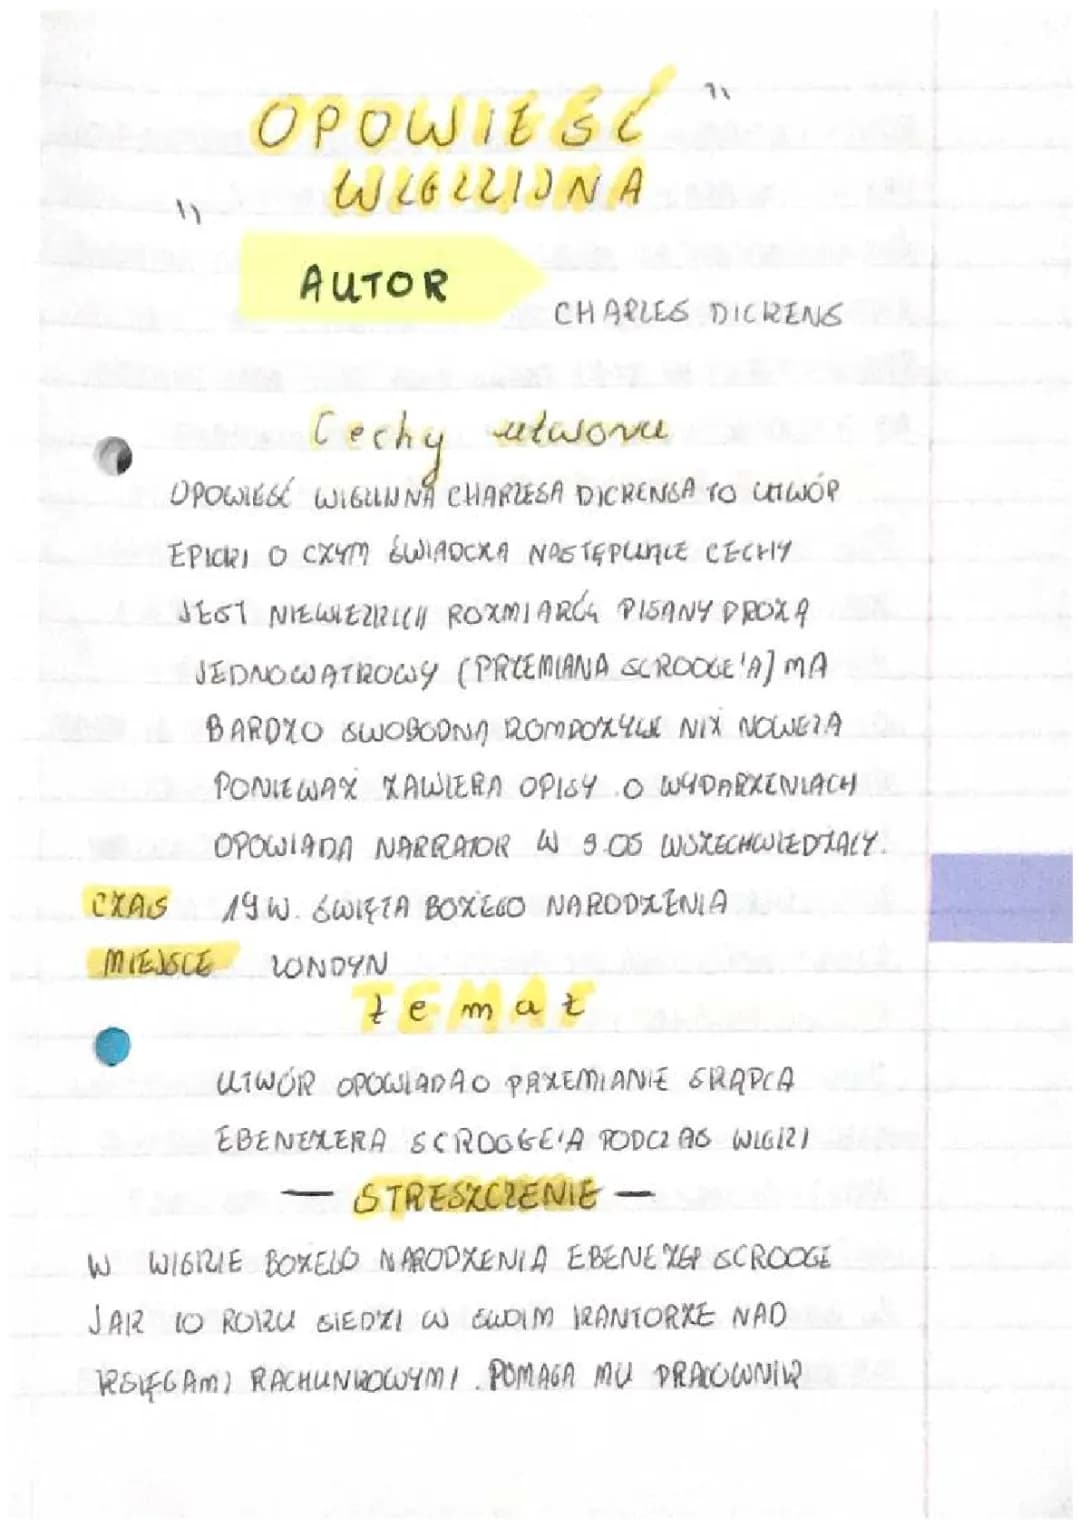 "OPOWIEŚĆ
WIGILIJNA"
AUTOR
CHARLES DICKENS
Cechy utworu
OPOWIEŚĆ WIGILIJNA CHARLESA DICKENSA TO UTWÓR
EPICKI O CZYM ŚWIADCZĄ NASTĘPUJĄCE CECHY
JEST NIEWIELKICH ROZMIARÓW PISANY PROZĄ
JEDNOWĄTKOWY (PRZEMIANA SCROOGE'A) MA
BARDZO SWOBODNĄ KOMPOZYCJE NIŻ NOWELA
PONIEWAŻ ZAWIERA OPISY. O WYDARZENIACH
OPOWIADA NARRATOR W 3.OS WSZECHWIEDZĄCY.
CZAS 19 W. ŚWIĘTA BOŻEGO NARODZENIA
MIEJSCE LONDYN
TEMAT
UTWÓR OPOWIADA O PRZEMIANIE SKĄPCA
EBENEZERA SCROGGE'A PODCZAS WIGILI
— STRESZCZENIE —
W WIGILIE BOŻEGO NARODZENIA EBENEZER SCROOGE
JAK CO ROKU SIEDZI W SWOIM KANTORZE NAD
KSIĘGAMI RACHUNKOWYMI. POMAGA MU PRACOWNIK